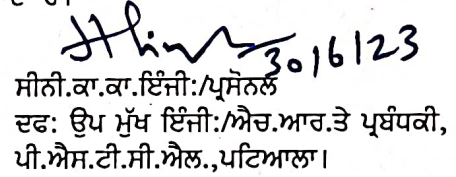 30/6/23
ਸੀਨੀ.ਕਾ.ਕਾ.ਇੰਜੀ:/ਪ੍ਰਸੋਨਲ
ਦਫ: ਉਪ ਮੁੱਖ ਇੰਜੀ:/ਐਚ.ਆਰ.ਤੇ ਪ੍ਰਬੰਧਕੀ,
ਪੀ.ਐਸ.ਟੀ.ਸੀ.ਐਲ.,ਪਟਿਆਲਾ।